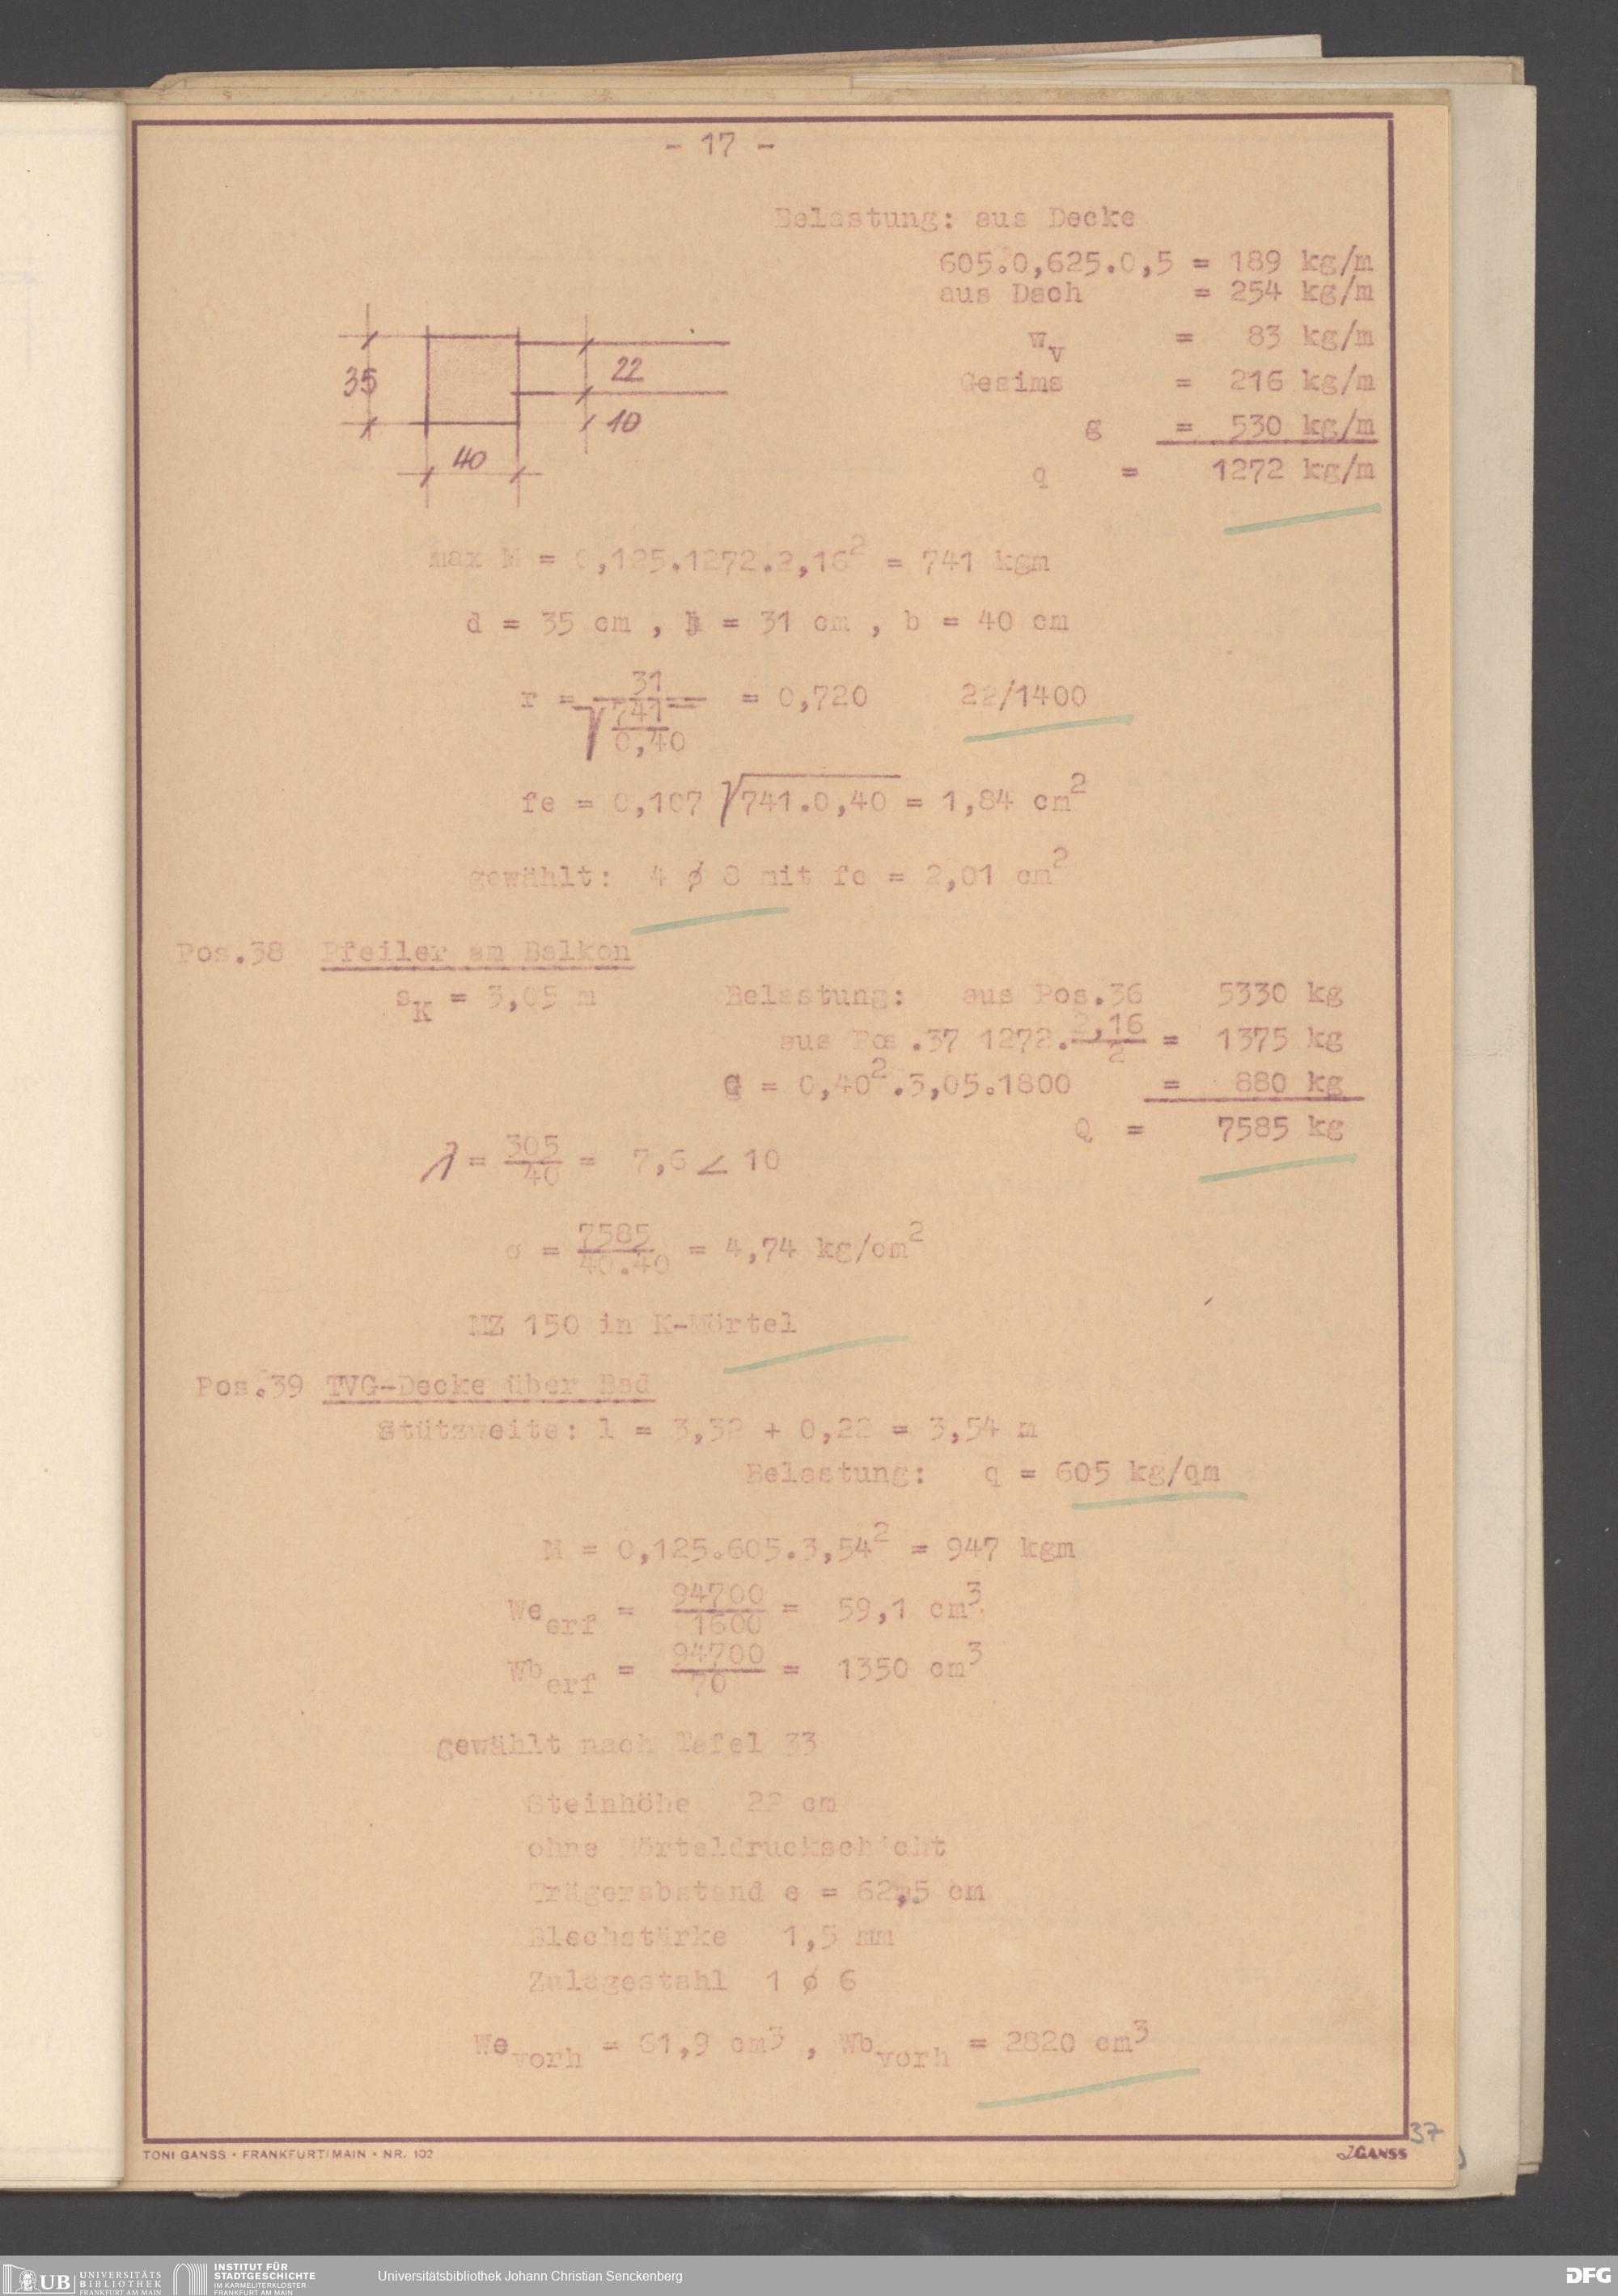 - 17 -
Belastung: aus Decke
605.0,625.0,5 = 189 kg/m
aus Dach = 254 kg/m
wv = 83 kg/m
Gesims = 216 kg/m
g = 530 kg/m
q = 1272 kg/m
35
22
10
40
max M = 0,125.1272.2,16² = 741 kgm
d = 35 cm , h = 31 cm , b = 40 cm
r = 31 / √(741 / 0,40) = 0,720 22/1400
fe = 0,107 √741.0,40 = 1,84 cm²
gewählt: 4 ø 8 mit fe = 2,01 cm²
Pos.38 Pfeiler am Balkon
sK = 3,05 m Belastung: aus Pos.36 5330 kg
aus Pos.37 1272.2,16/2 = 1375 kg
G = 0,40².3,05.1800 = 880 kg
Q = 7585 kg
λ = 305/40 = 7,6 < 10
σ = 7585/40.40 = 4,74 kg/cm²
MZ 150 in K-Mörtel
Pos.39 TVG-Decke über Bad
Stützweite: l = 3,32 + 0,22 = 3,54 m
Belastung: q = 605 kg/qm
M = 0,125.605.3,54² = 947 kgm
We erf = 94700/1600 = 59,1 cm³
Wb erf = 94700/70 = 1350 cm³
gewählt nach Tafel 33
Steinhöhe 22 cm
ohne Mörteldruckschicht
Trägerabstand e = 62,5 cm
Blechstärke 1,5 mm
Zulagestahl 1 ø 6
We vorh = 61,9 cm³ , Wb vorh = 2820 cm³
37
TONI GANSS • FRANKFURT/MAIN • NR. 102
GANSS
UB UNIVERSITÄTS BIBLIOTHEK FRANKFURT AM MAIN
INSTITUT FÜR STADTGESCHICHTE IM KARMELITERKLOSTER FRANKFURT AM MAIN
Universitätsbibliothek Johann Christian Senckenberg
DFG